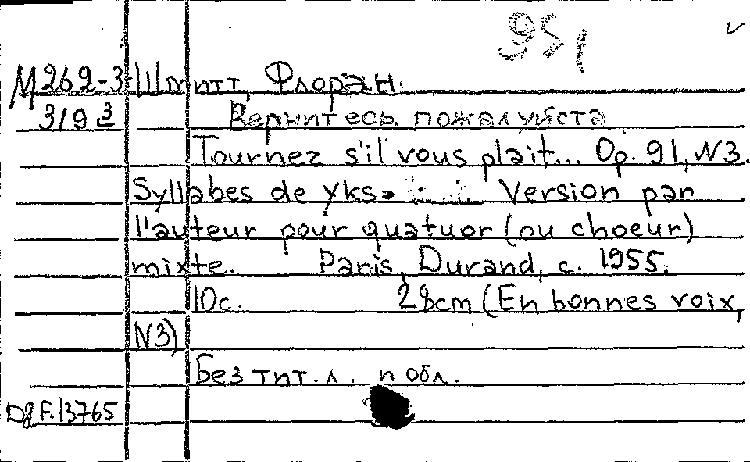 951
М262-3 Шмитт, Флоран.
319 3 Вернитесь пожалуйста
Tournez s'il vous plait... Op. 91, N3.
Syllabes de Yks. Version par
l'auteur pour quatuor (ou choeur)
mixte. Paris, Durand, c. 1955.
10с. 28cm (En bonnes voix,
N3)
Без тит. л. и обл.
Dg F.13765